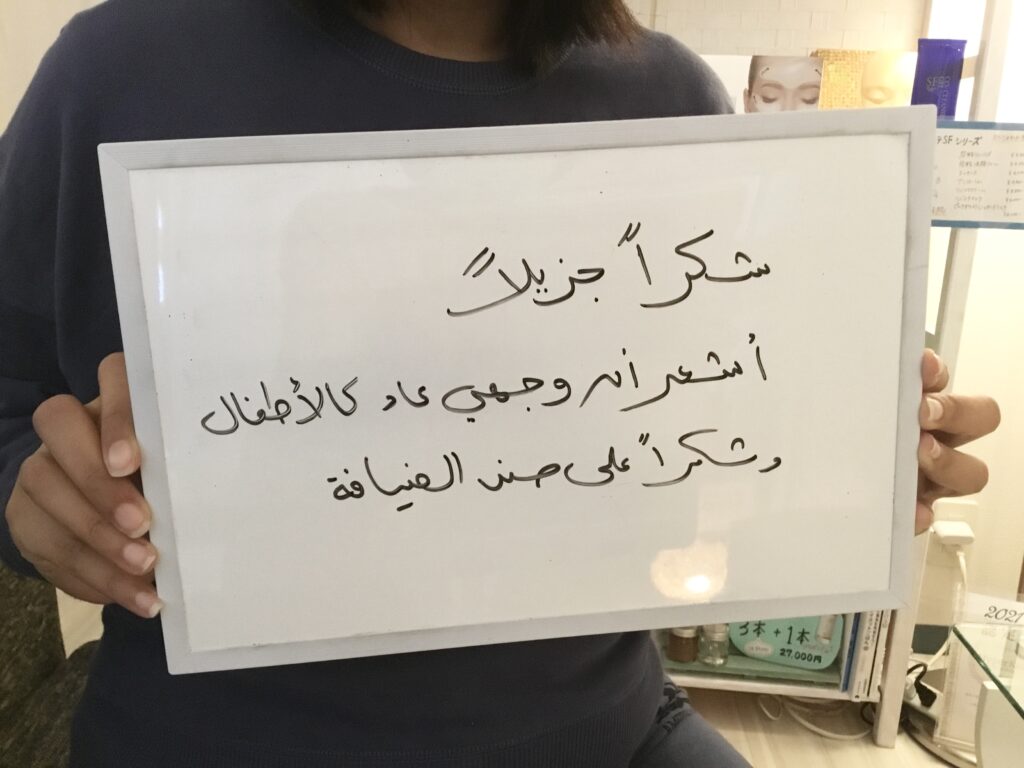 شكراً جزيلاً
أشعر أن وجهي عاد كالأطفال
وشكراً على حسن الضيافة
SF シリーズ
3本+1本
27,000円
2021